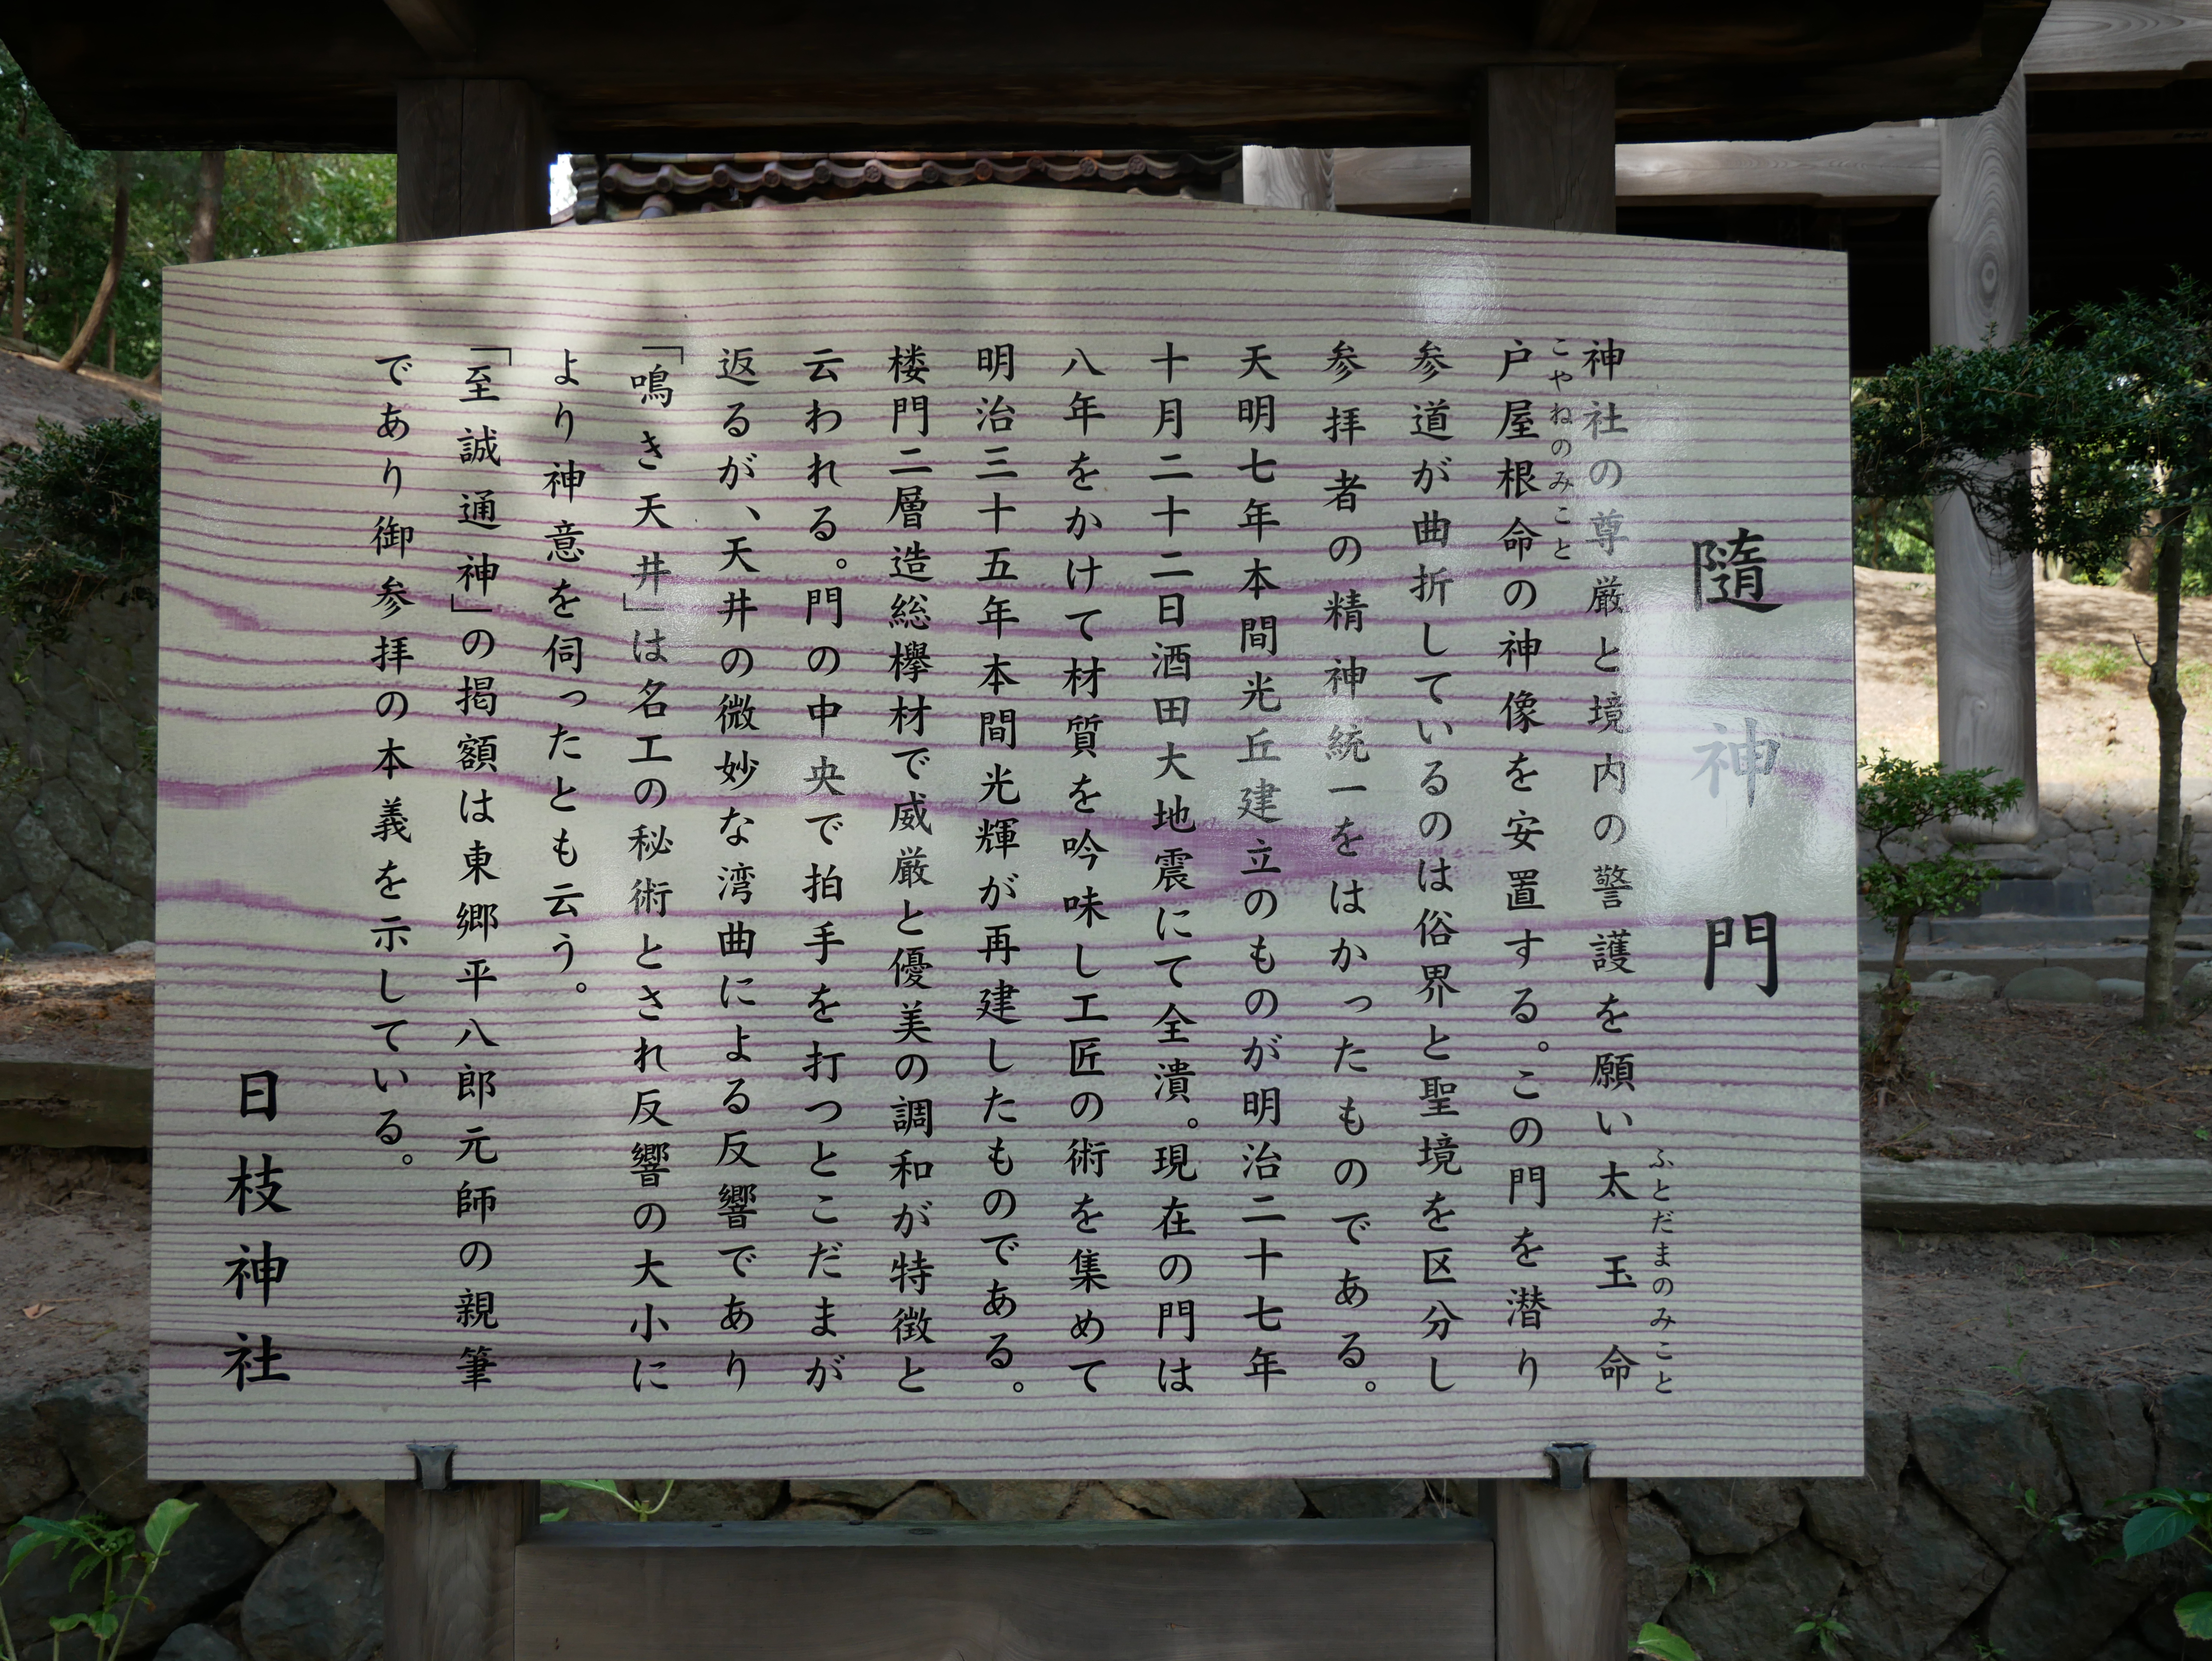 隨神門
神社の尊厳と境内の警護を願い太玉命
ふとだまのみこと
戸屋根命の神像を安置する。この門を潜り
こやねのみこと
参道が曲折しているのは俗界と聖境を区分し
参拝者の精神統一をはかったものである。
天明七年本間光丘建立のものが明治二十七年
十月二十二日酒田大地震にて全潰。現在の門は
八年をかけて材質を吟味し工匠の術を集めて
明治三十五年本間光輝が再建したものである。
楼門二層造総欅材で威厳と優美の調和が特徴と
云われる。門の中央で拍手を打つとこだまが
返るが、天井の微妙な湾曲による反響であり
「鳴き天井」は名工の秘術とされ反響の大小に
より神意を伺ったとも云う。
「至誠通神」の掲額は東郷平八郎元師の親筆
であり御参拝の本義を示している。
日枝神社